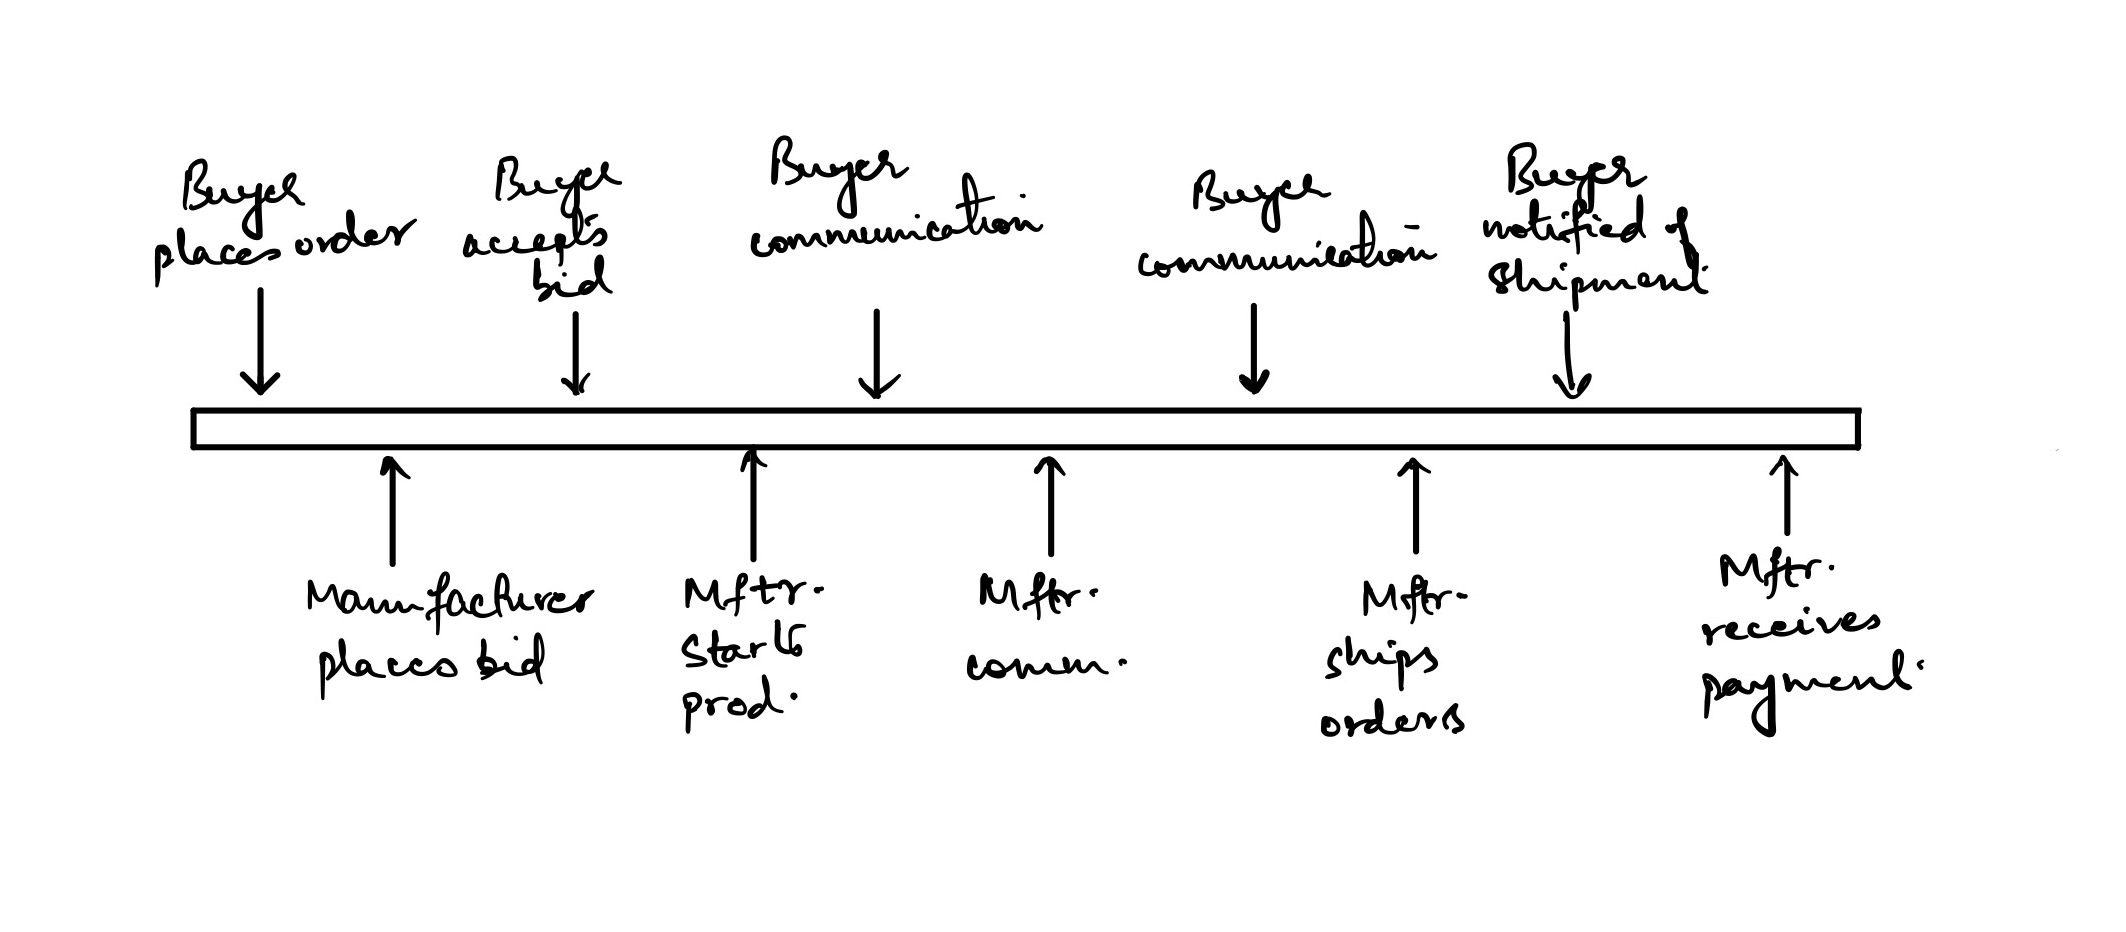 Buyer
places order
Buyer
accepts
bid
Buyer
communication
Buyer
communication
Buyer
notified of
shipment
Manufacturer
places bid
Mftr.
starts
prod.
Mftr.
comm.
Mftr.
ships
orders
Mftr.
receives
payment.